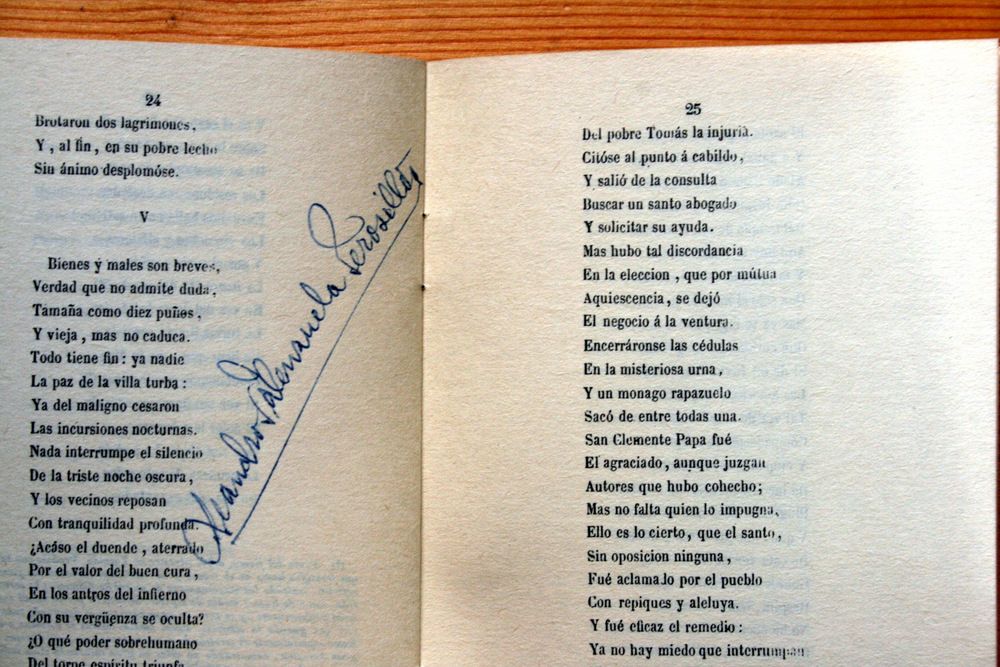 24
Brotaron dos lagrimones,
Y, al fin, en su pobre lecho
Sin ánimo desplomóse.
V
Bienes y males son breves,
Verdad que no admite duda,
Tamaña como diez puños,
Y vieja, mas no caduca.
Todo tiene fin: ya nadie
La paz de la villa turba:
Ya del maligno cesaron
Las incursiones nocturnas.
Nada interrumpe el silencio
De la triste noche oscura,
Y los vecinos reposan
Con tranquilidad profunda.
¿Acáso el duende, aterrado
Por el valor del buen cura,
En los antros del infierno
Con su vergüenza se oculta?
¿O qué poder sobrehumano
Del torpe espíritu triunfa
Leandro Valenzuela
25
Del pobre Tomás la injuria.
Citóse al punto á cabildo,
Y salió de la consulta
Buscar un santo abogado
Y solicitar su ayuda.
Mas hubo tal discordancia
En la eleccion, que por mútua
Aquiescencia, se dejó
El negocio á la ventura.
Encerráronse las cédulas
En la misteriosa urna,
Y un monago rapazuelo
Sacó de entre todas una.
San Clemente Papa fué
El agraciado, aunque juzgan
Autores que hubo cohecho;
Mas no falta quien lo impugna,
Ello es lo cierto, que el santo,
Sin oposicion ninguna,
Fué aclamado por el pueblo
Con repiques y aleluya.
Y fué eficaz el remedio:
Ya no hay miedo que interrumpan